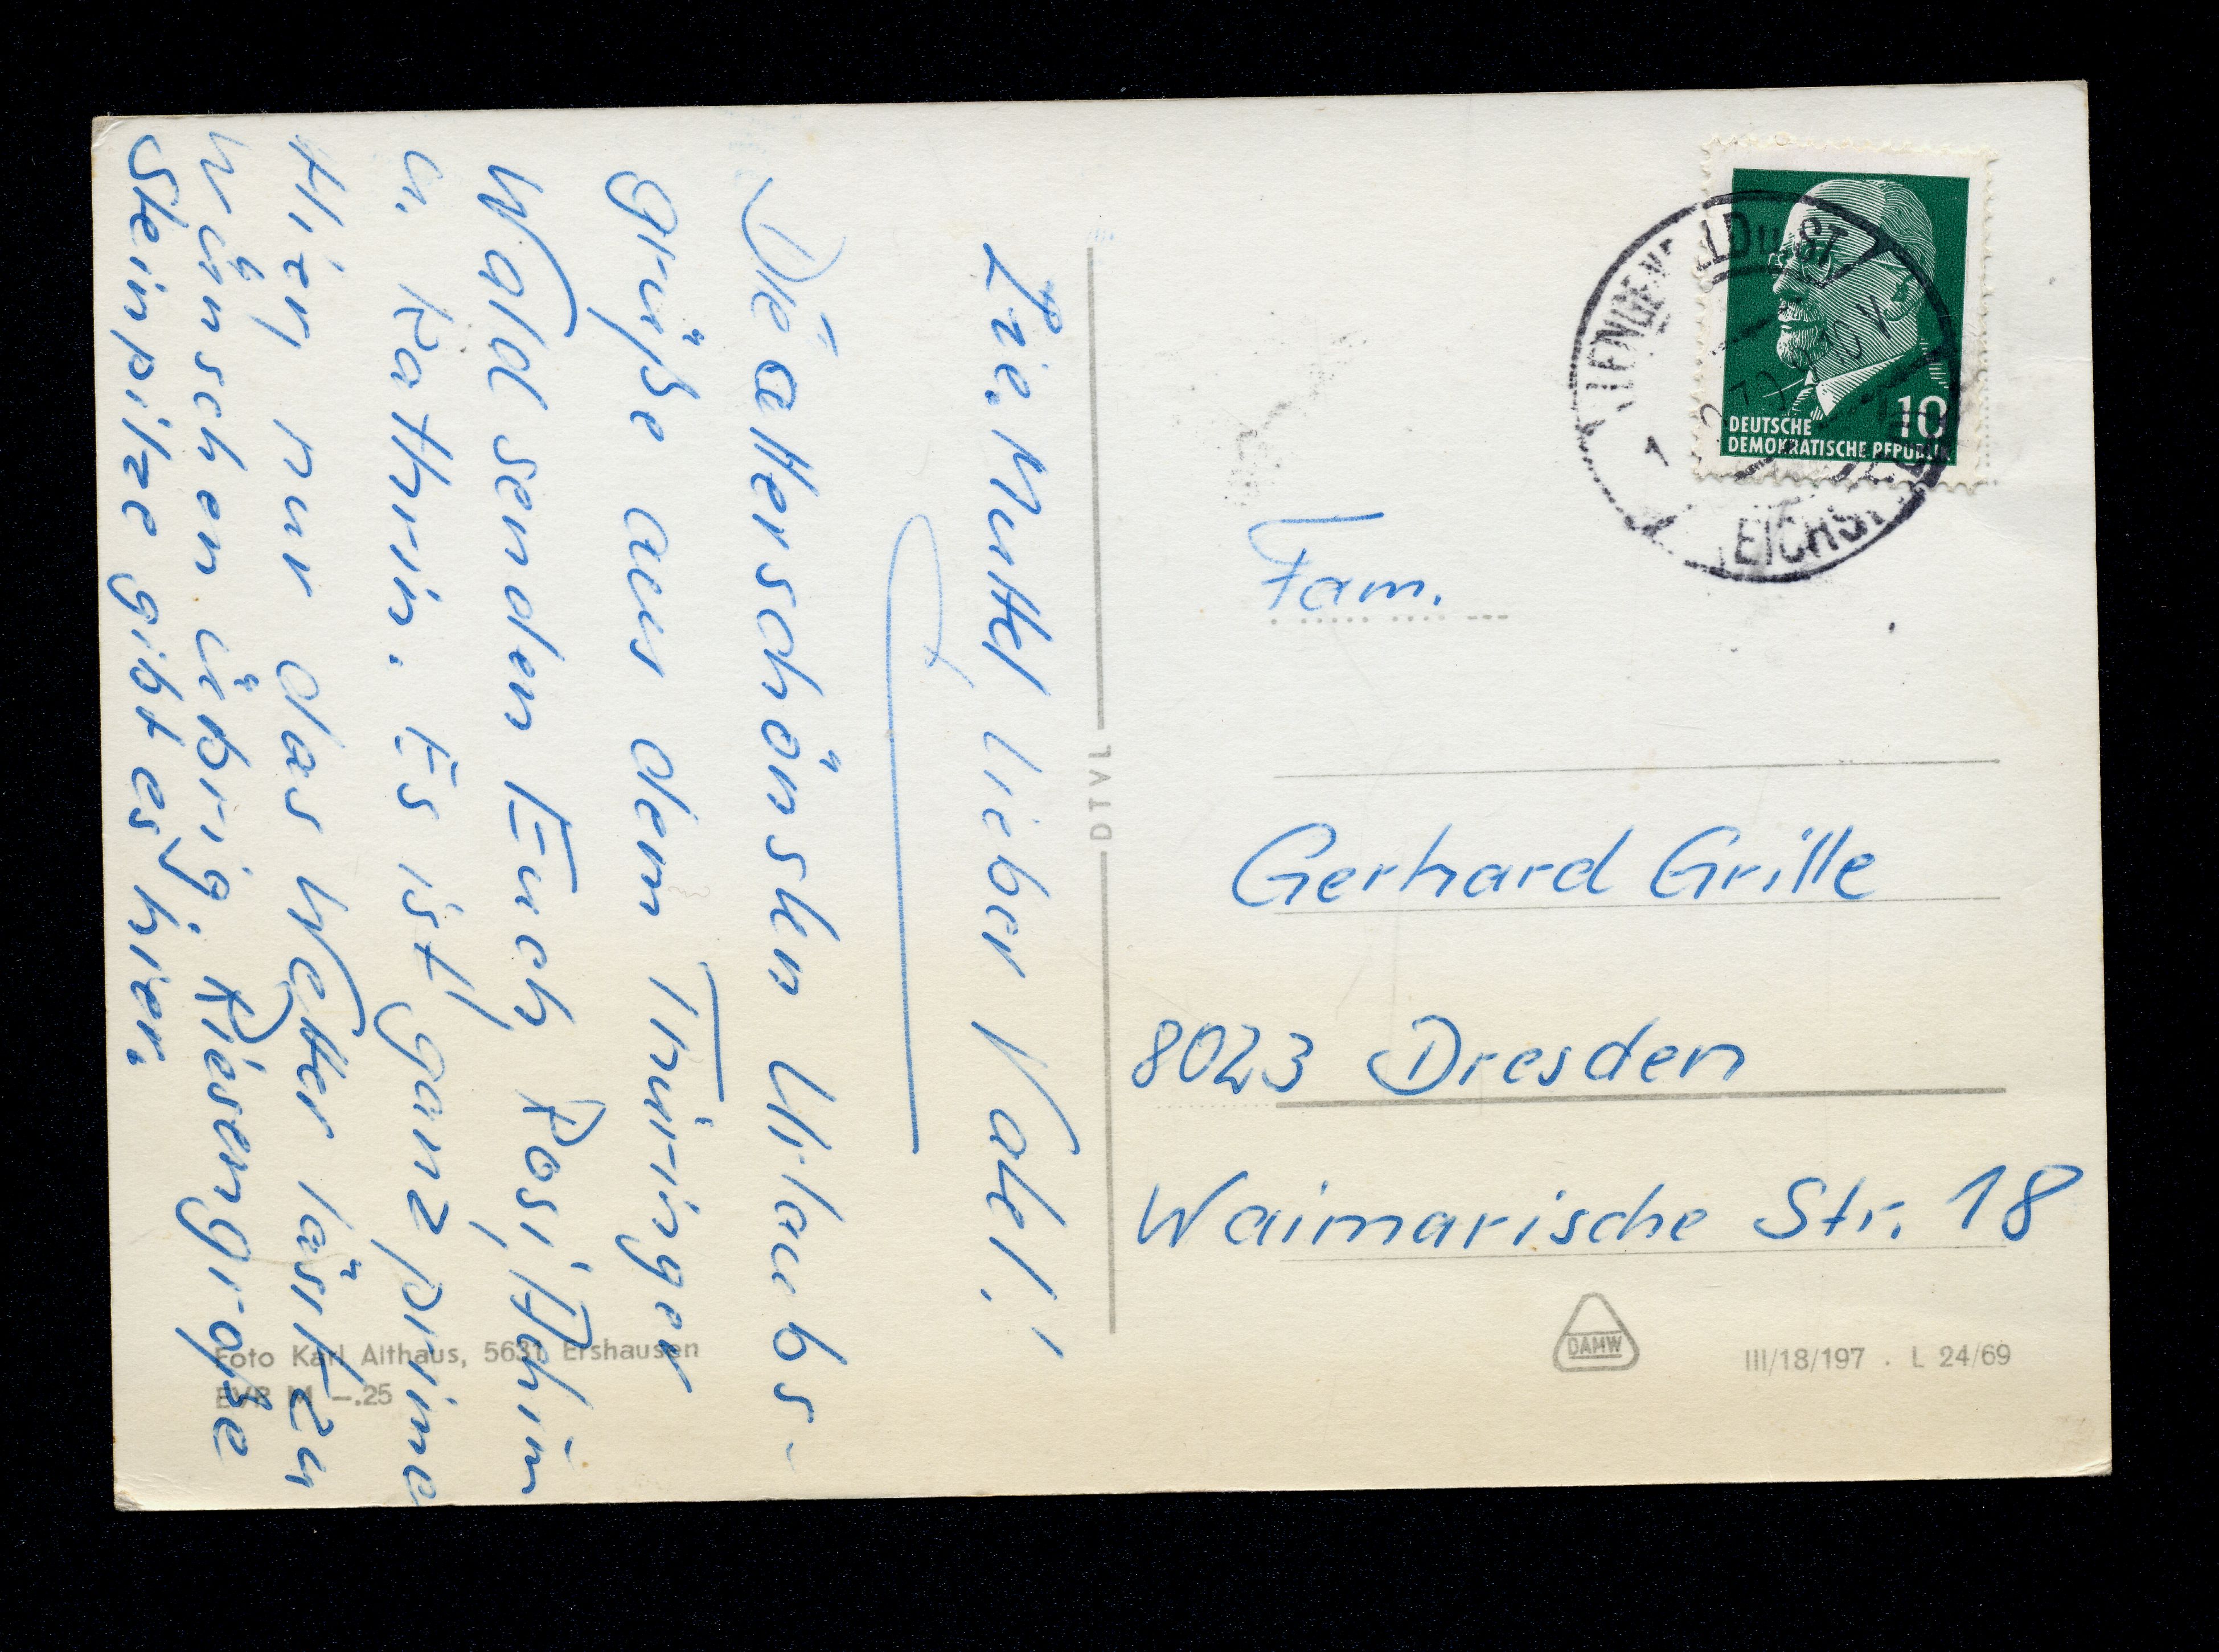 Lie. Muttel lieber Vatel!
Die allerschönsten Urlaubs-
grüße aus dem Thüringer
Wald senden Euch Rosi, Achim
u. Kathrin. Es ist ganz prima
hier, nur das Wetter lässt zu
wünschen übrig. Riesengroße
Steinpilze gibt es hier.
Foto Karl Althaus, 5631 Ershausen
EVP M —.25
DTVL
DEUTSCHE
DEMOKRATISCHE REPUBLIK
10
Fam.
Gerhard Grille
8023 Dresden
Waimarische Str. 18
DAMW
III/18/197 . L 24/69